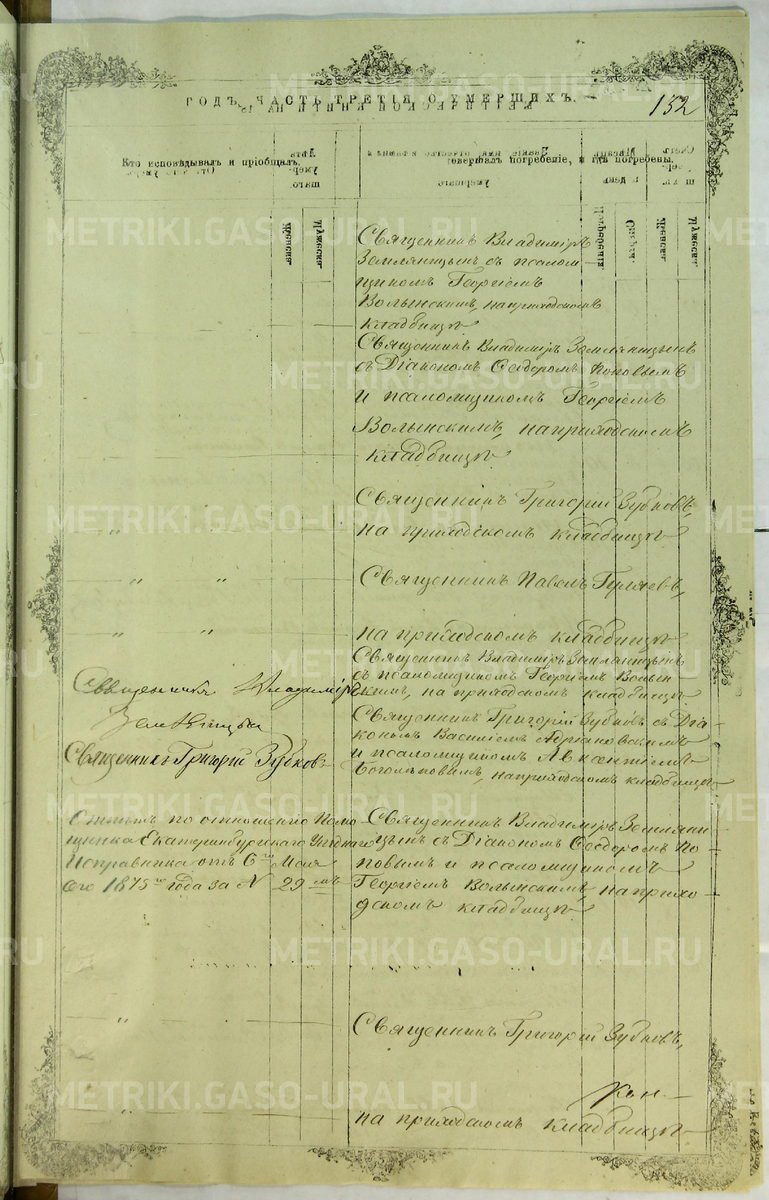 METRIKI.GASO-URAL.RU
ГОДЪ, ЧАСТЬ ТРЕТІЯ, О УМЕРШИХЪ.
152
Кто исповѣдывалъ и пріобщалъ.
совершалъ погребеніе, и гдѣ погребены.
Священникъ Владиміръ
Земляницынъ съ псалом-
щикомъ Георгіемъ
Волынскимъ, на приходскомъ
кладбищѣ
Священникъ Владиміръ Земляницынъ
съ Діакономъ Ѳеодоромъ Поповымъ
и псаломщикомъ Георгіемъ
Волынскимъ, на приходскомъ
кладбищѣ
Священникъ Григорій Зубковъ,
на приходскомъ кладбищѣ
Священникъ Павелъ Гуляевъ,
на приходскомъ кладбищѣ
Священникъ Владиміръ Земляницынъ
съ псаломщикомъ Георгіемъ Волын-
скимъ, на приходскомъ кладбищѣ
Священникъ Владиміръ
Земляницынъ
Священникъ Григорій Зубковъ съ Діа-
кономъ Василіемъ Адріановскимъ
и псаломщикомъ Авксентіемъ
Богомоловымъ, на приходскомъ кладбищѣ
Священникъ Григорій Зубковъ
Отпѣтъ по отношенію Помо-
щника Екатеринбургскаго Уѣзднаго
Исправника отъ 6го Мая
сего 1875го года за № 29мъ
Священникъ Владиміръ Земляни-
цынъ съ Діакономъ Ѳеодоромъ По-
повымъ и псаломщикомъ
Георгіемъ Волынскимъ, на прихо-
дскомъ кладбищѣ
Священникъ Григорій Зубковъ,
на приходскомъ кладбищѣ